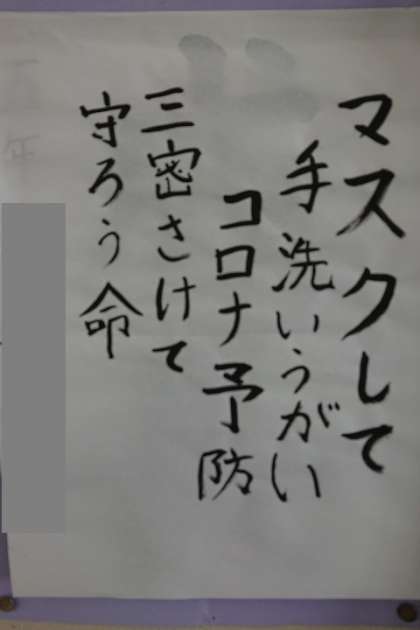 マスクして
手洗いうがい
コロナ予防
三密さけて
守ろう命